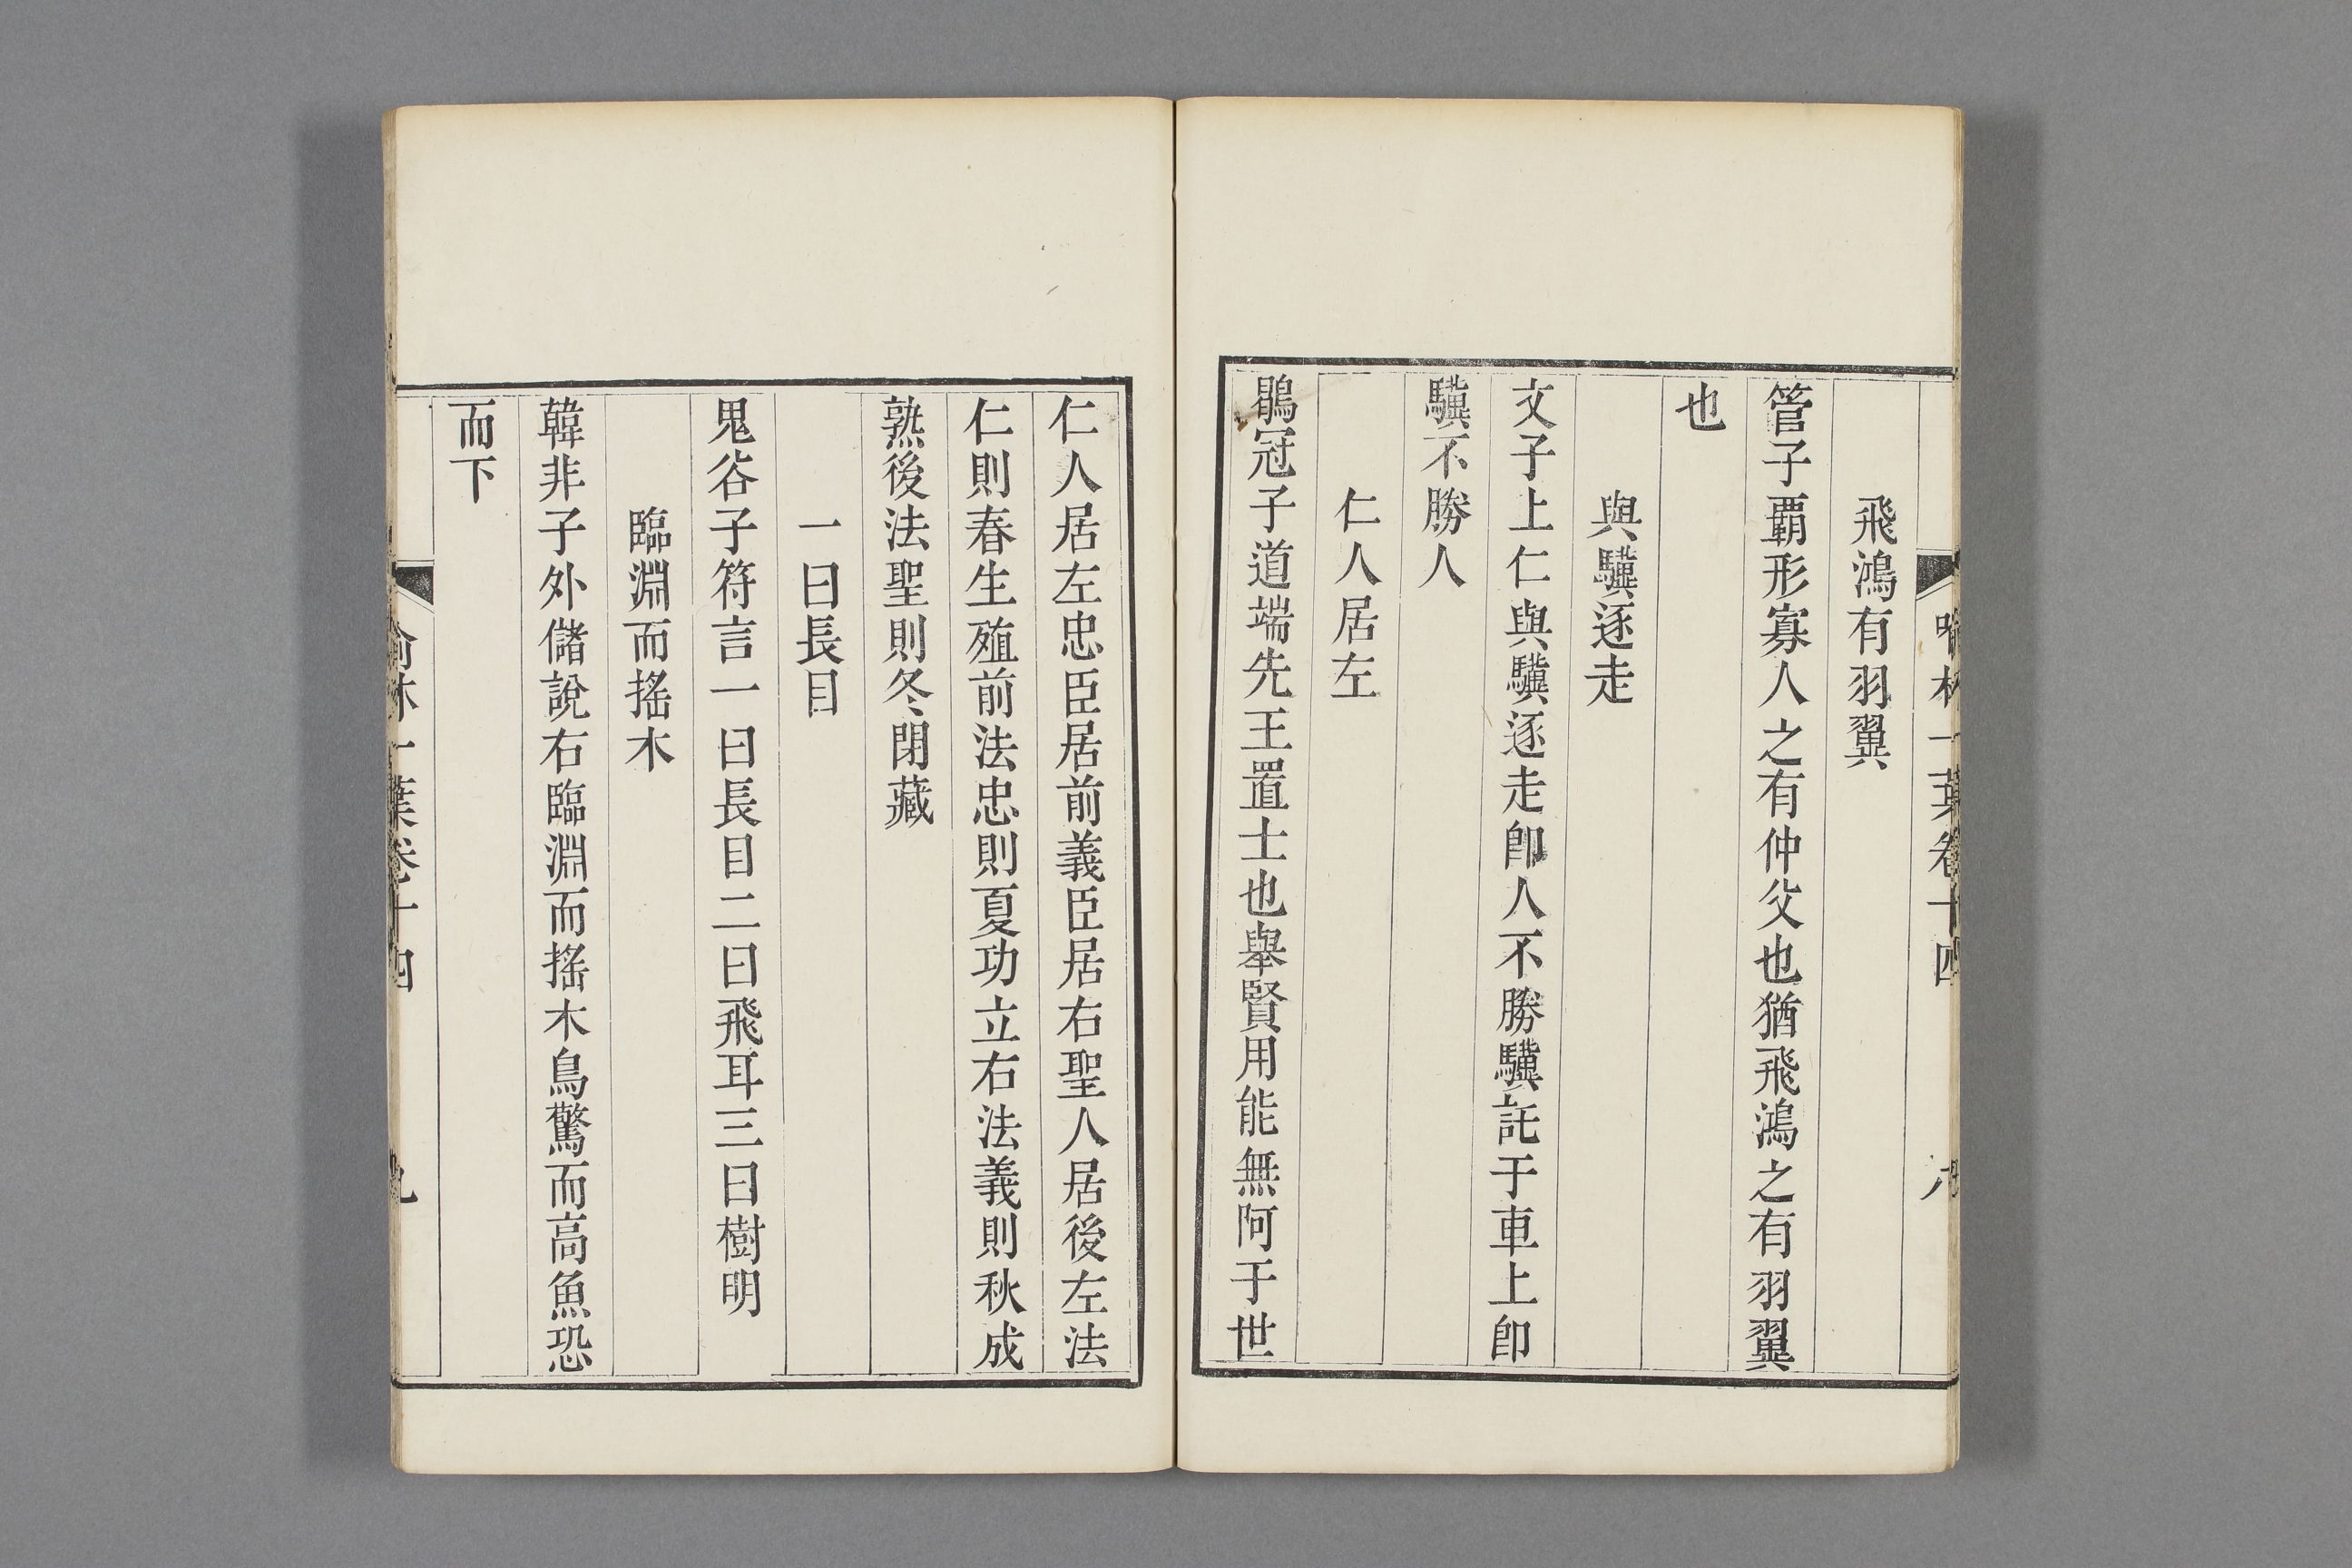 喻林一葉卷十四
八
飛鴻有羽翼
管子霸形寡人之有仲父也猶飛鴻之有羽翼
也
與驥逐走
文子上仁與驥逐走卽人不勝驥託于車上卽
驥不勝人
仁人居左
鶡冠子道端先王置士也舉賢用能無阿于世
仁人居左忠臣居前義臣居右聖人居後左法
仁則春生殖前法忠則夏功立右法義則秋成
熟後法聖則冬閉藏
一曰長目
鬼谷子符言一曰長目二曰飛耳三曰樹明
臨淵而搖木
韓非子外儲說右臨淵而搖木鳥驚而高魚恐
而下
喻林一葉卷十四
九